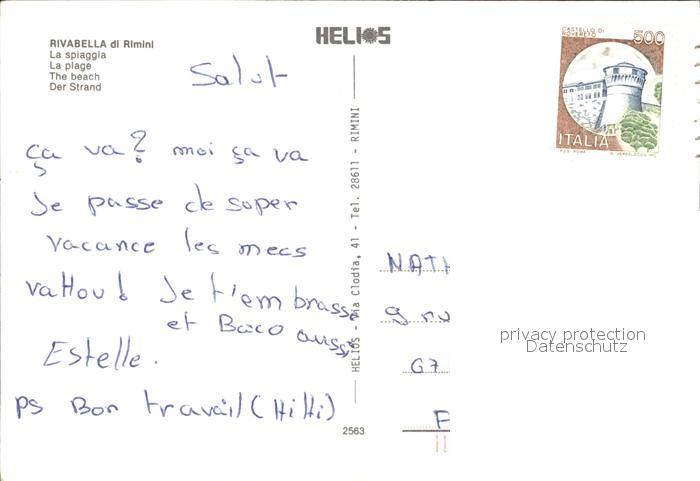 HELIOS
RIVABELLA di Rimini
La spiaggia
La plage
The beach
Der Strand
CASTELLO DI
ROVERETO
500
ITALIA
Salut
ça va? moi ça va
Je passe de super
vacance les mecs
Je t'embrasse
et Baco aussi
Estelle.
PS Bon travail (HiHi)
HELIOS - Via Clodia, 41 - Tel. 28611 - RIMINI
2563
NATH
9 ru
67
F
privacy protection
Datenschutz